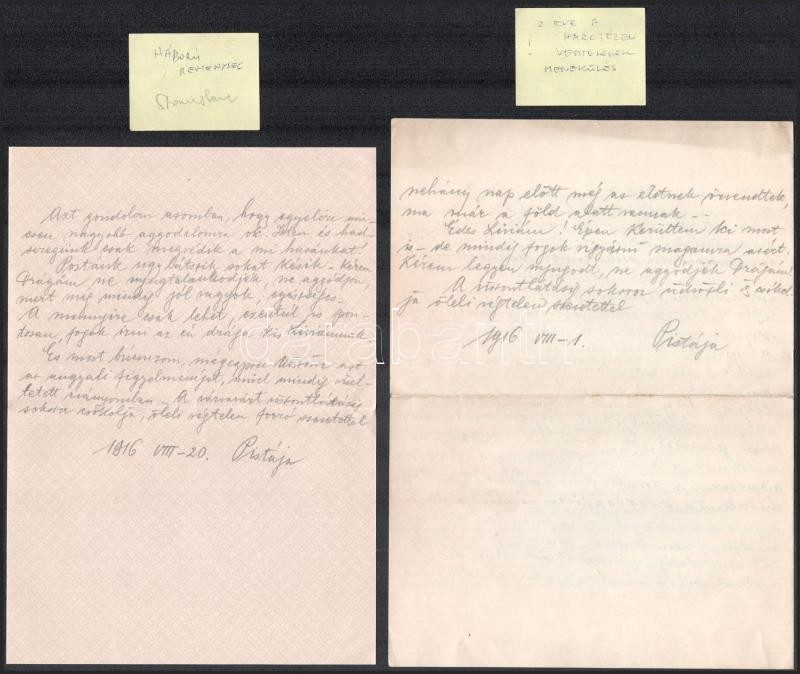 HÁBORÚ
REMÉNYSÉG
Stanislau
2 ÉVE A
! HARCTÉREN
! VESZTESÉGEK
MENEKÜLÉS
Azt gondolom azonban, hogy egyelőre nin-
csen nagyobb aggodalomra ok. Isten és had-
seregünk csak megvédik a mi hazánkat!
Postánk úgy látszik sokat késik – kérem
Drágám ne nyugtalankodjék, ne aggódjon,
mert még mindig jól vagyok, egészséges.
A mennyire csak lehet, ezentúl is pon-
tosan fogok írni az én drága, kis Líviámnak.
És most búcsúzom, megegyszer köszönve azt
az angyali figyelmességét, mivel mindig visel-
tetett irányomban – A mielőbbi viszontlátásig
sokszor csókolja, öleli végtelen forró szeretettel
1916 VIII–20. Pistája
néhány nap előtt még az életnek örvendtek,
ma már a föld alatt vannak –.
Édes Líviám! Épen kerültem ki most
is – de mindig fogok vigyázni magamra azért.
Kérem legyen nyugodt, ne aggódjék Drágám!
A viszontlátásig sokszor üdvözli és csókol-
ja öleli végtelen szeretettel
1916 VIII–1. Pistája
darabanth